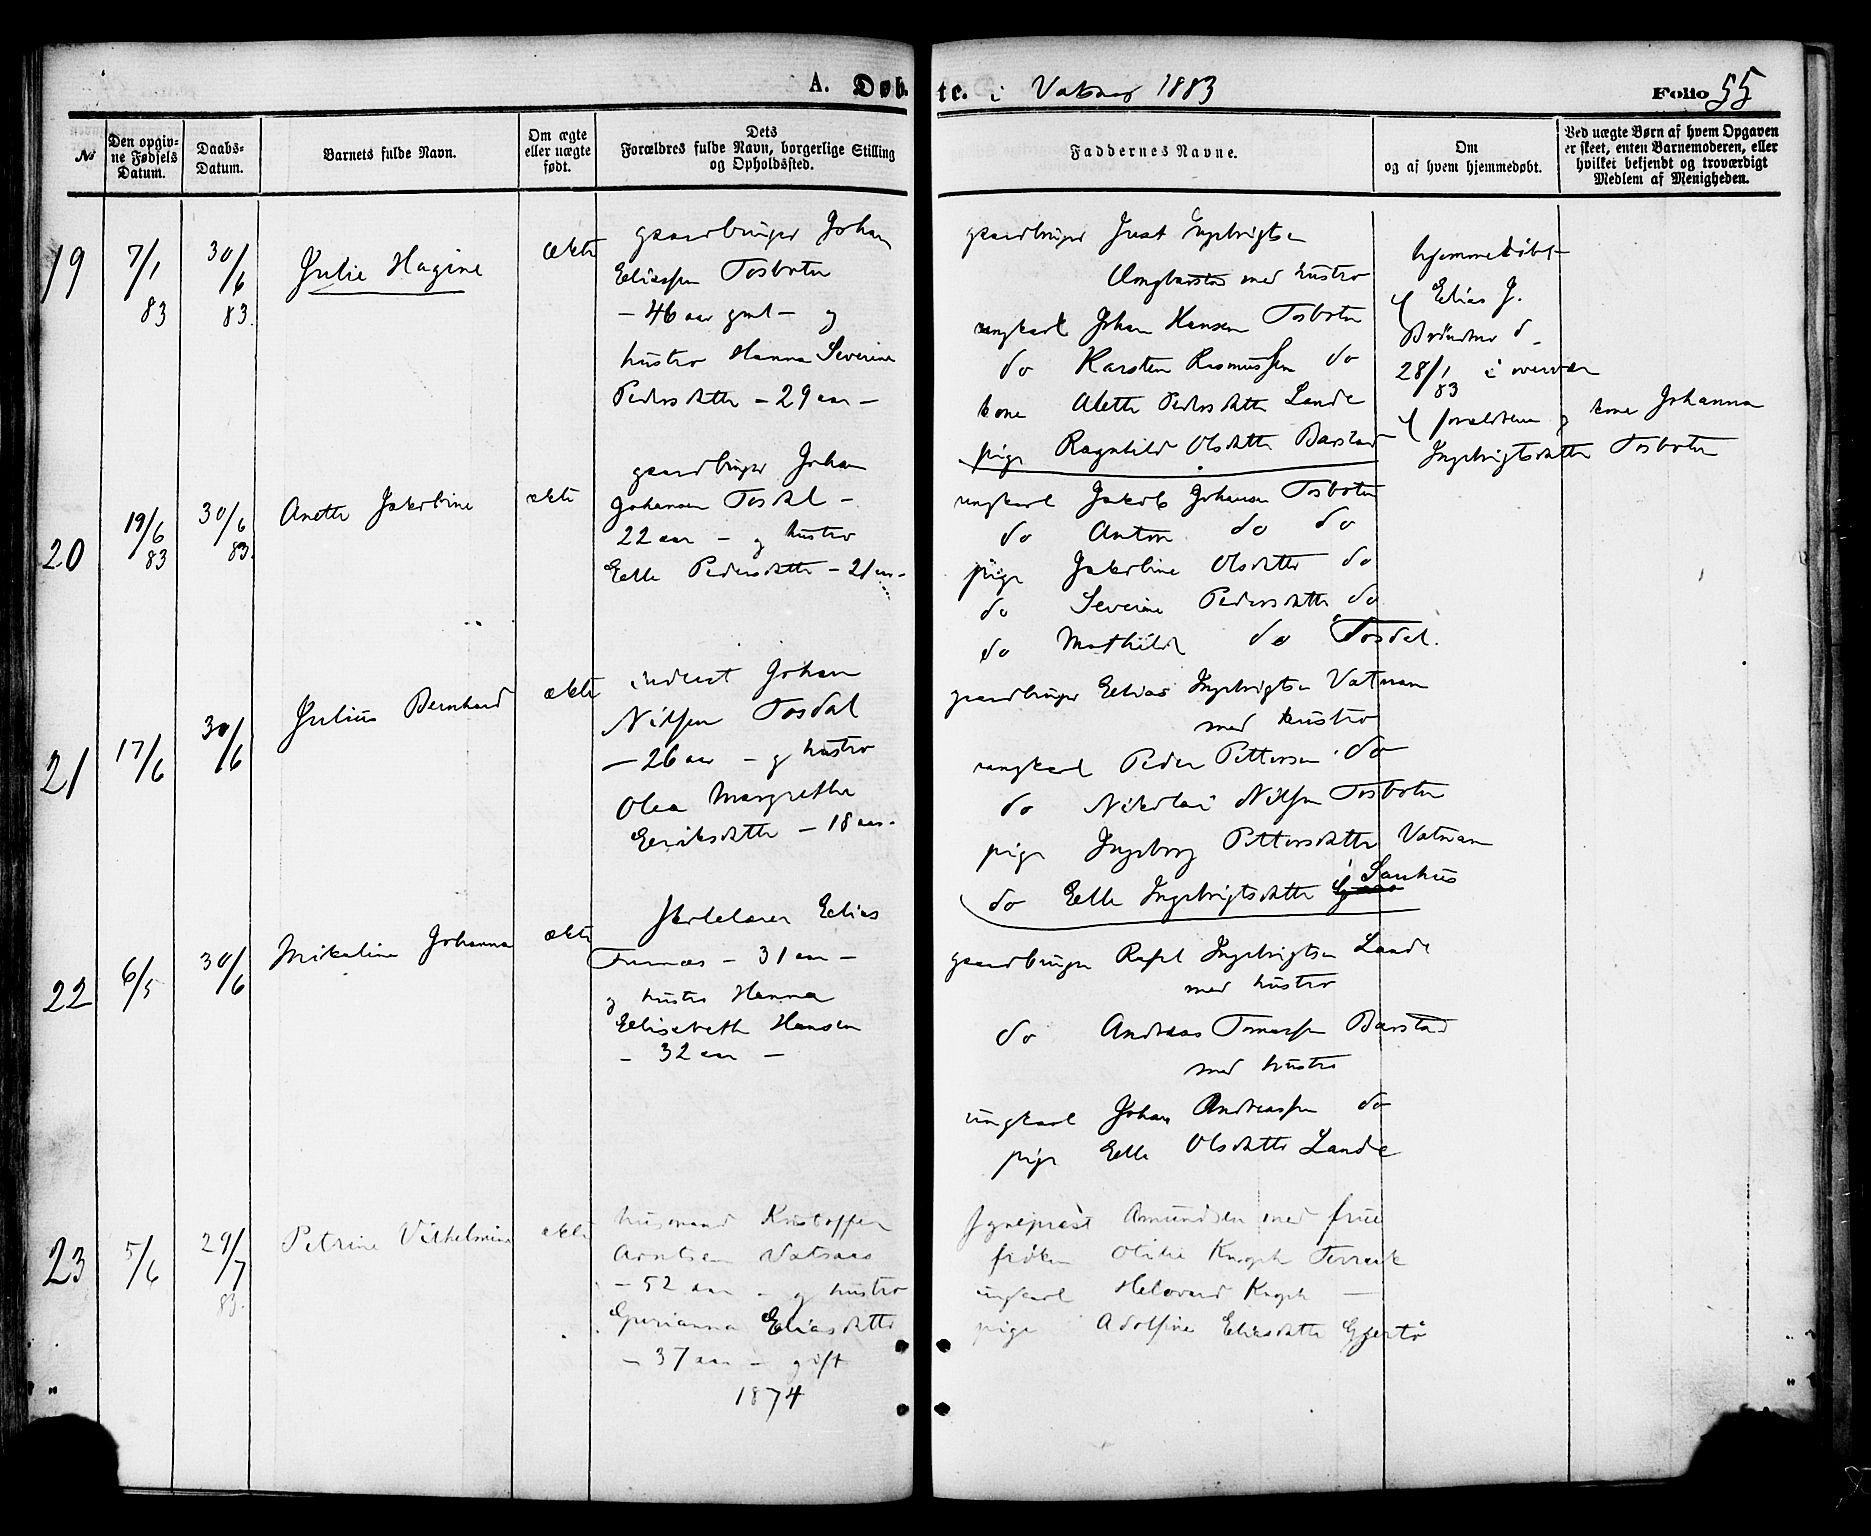 A. Døbte. i Vatnet 1883 Folio 55
No
Den opgivne Fødsels Datum.
Daabs-Datum.
Barnets fulde Navn.
Om ægte eller uægte født.
Dets Forældres fulde Navn, borgerlige Stilling og Opholdssted.
Faddernes Navne.
Om og af hvem hjemmedøbt.
Ved uægte Børn af hvem Opgaven er skeet, enten Barnemoderen, eller hvilket bekjendt og troværdigt Medlem af Menigheden.
19
7/1 83
30/6 83.
Julie Hagine
ækte
gaardbruger Johan
Eliassen Tosboten
– 46 aar gml – og
hustro Hanna Severine
Pedersdatter – 29 aar –
gaardbruger Just Ingebrigtsen
med hustro
ungkarl Johan Hansen Tosboten
do Karsten Rasmussen do
kone Alette Pedersdatter Lande
pige Ragnhild Olsdatter Barstad
hjemmedøbt
Elias J.
d.
28/1 83 i overvær
forældrene og kone Johanna
Ingebrigtsdatter Tosboten
20
19/6 83
30/6 83.
Anette Jakobine
ækte
gaardbruger Johan
Johansen Tosdal –
22 aar – og hustro
Elle Pedersdatter – 21 aar –
ungkarl Jakob Johansen Tosboten
do Anton do do
pige Jakobine Olsdatter do
do Severine Pedersdatter do
do Mathilde do Tosdal.
21
17/6
30/6
Julius Bernhard
ækte
inderst Johan
Nilssen Tosdal
– 26 aar – og hustro
Olea Margrethe
Eeriksdatter – 18 aar.
gaardbruger Eelias Ingebrigtsen Vatnan
med hustro
ungkarl Peder Pettersen do
do Nikolai Nilssen Tosboten
pige Ingeborg Pettersdatter Vatnan
do Eelle Ingebrigtsdatter Sauhus
22
6/5
30/6
Mikaline Johanna
ækte
skolelærer Eelias
Furnæs – 31 aar –
og hustro Hanna
Eelisabeth Hansen
– 32 aar –
gaardbruger Rafel Ingebrigtsen Lande
med hustro
do Andreas Tomassen Barstad
med hustro
ungkarl Johan Andreassen do
pige Eelle Olsdatter Lande
23
5/6
29/7 83.
Petrine Vilhelmine
ækte
husmand Kristoffer
Arntsen Vatsaas
– 52 aar – og hustro
Gurianna Eeliasdatter
– 37 aar – gift
1874
Sogneprest Amundsen med frue
frøken Otilie Knoph Terraak
ungkarl Helvard Knoph —
pige Adolfine Eeliasdatter